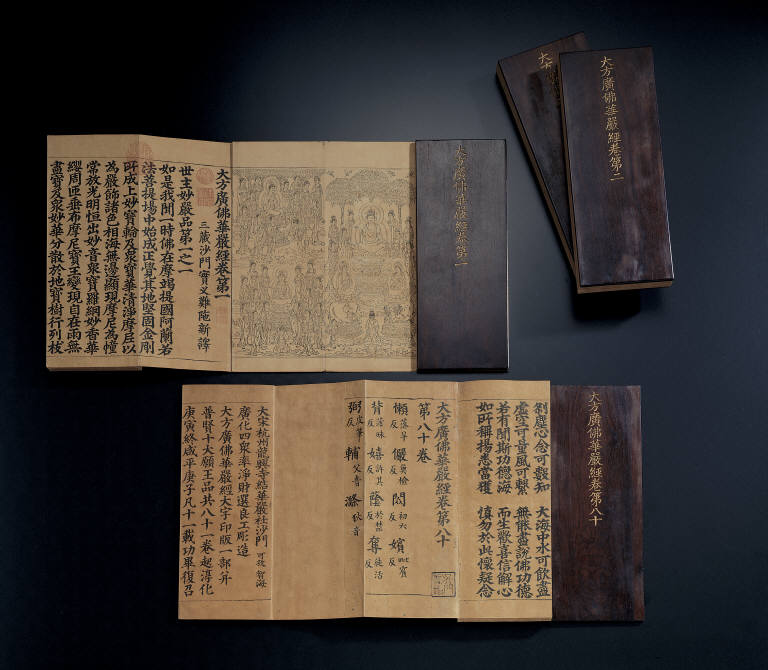 大方
大方廣佛華嚴經卷第二
大方廣佛華嚴經卷第一
大方廣佛華嚴經卷第一
三藏沙門實叉難陁新譯
世主妙嚴品第一之一
如是我聞一時佛在摩竭提國阿蘭若
法菩提場中始成正覺其地堅固金剛
所成上妙寶輪及衆寶華清淨摩尼以
為嚴飾諸色相海無邊顯現摩尼為幢
常放光明恒出妙音衆寶羅網妙香華
纓周匝垂布摩尼寶王變現自在雨無
盡寶及衆妙華分散於地寶樹行列枝
大方廣佛華嚴經卷第八十
剎塵心念可數知 大海中水可飲盡
虛空可量風可繫 無能盡說佛功德
若有聞斯功德海 而生歡喜信解心
如所稱揚悉當獲 慎勿於此懷疑念
大方廣佛華嚴經卷第八十
第八十卷
懶落旱反 儼魚檢反 初六反 嬪毗賓反
背蒲昧反 嬉許其反 蔭於禁反 奪徒活反
弼皮筆反 輔父音 滌狄音
大宋杭州龍興寺結華嚴社沙門 智海
廣化四衆率淨財選良工彫造
大方廣佛華嚴經大字印版一部并
普賢十大願王品共八十一卷起淳化
庚寅終咸平庚子凡十一載功畢復召